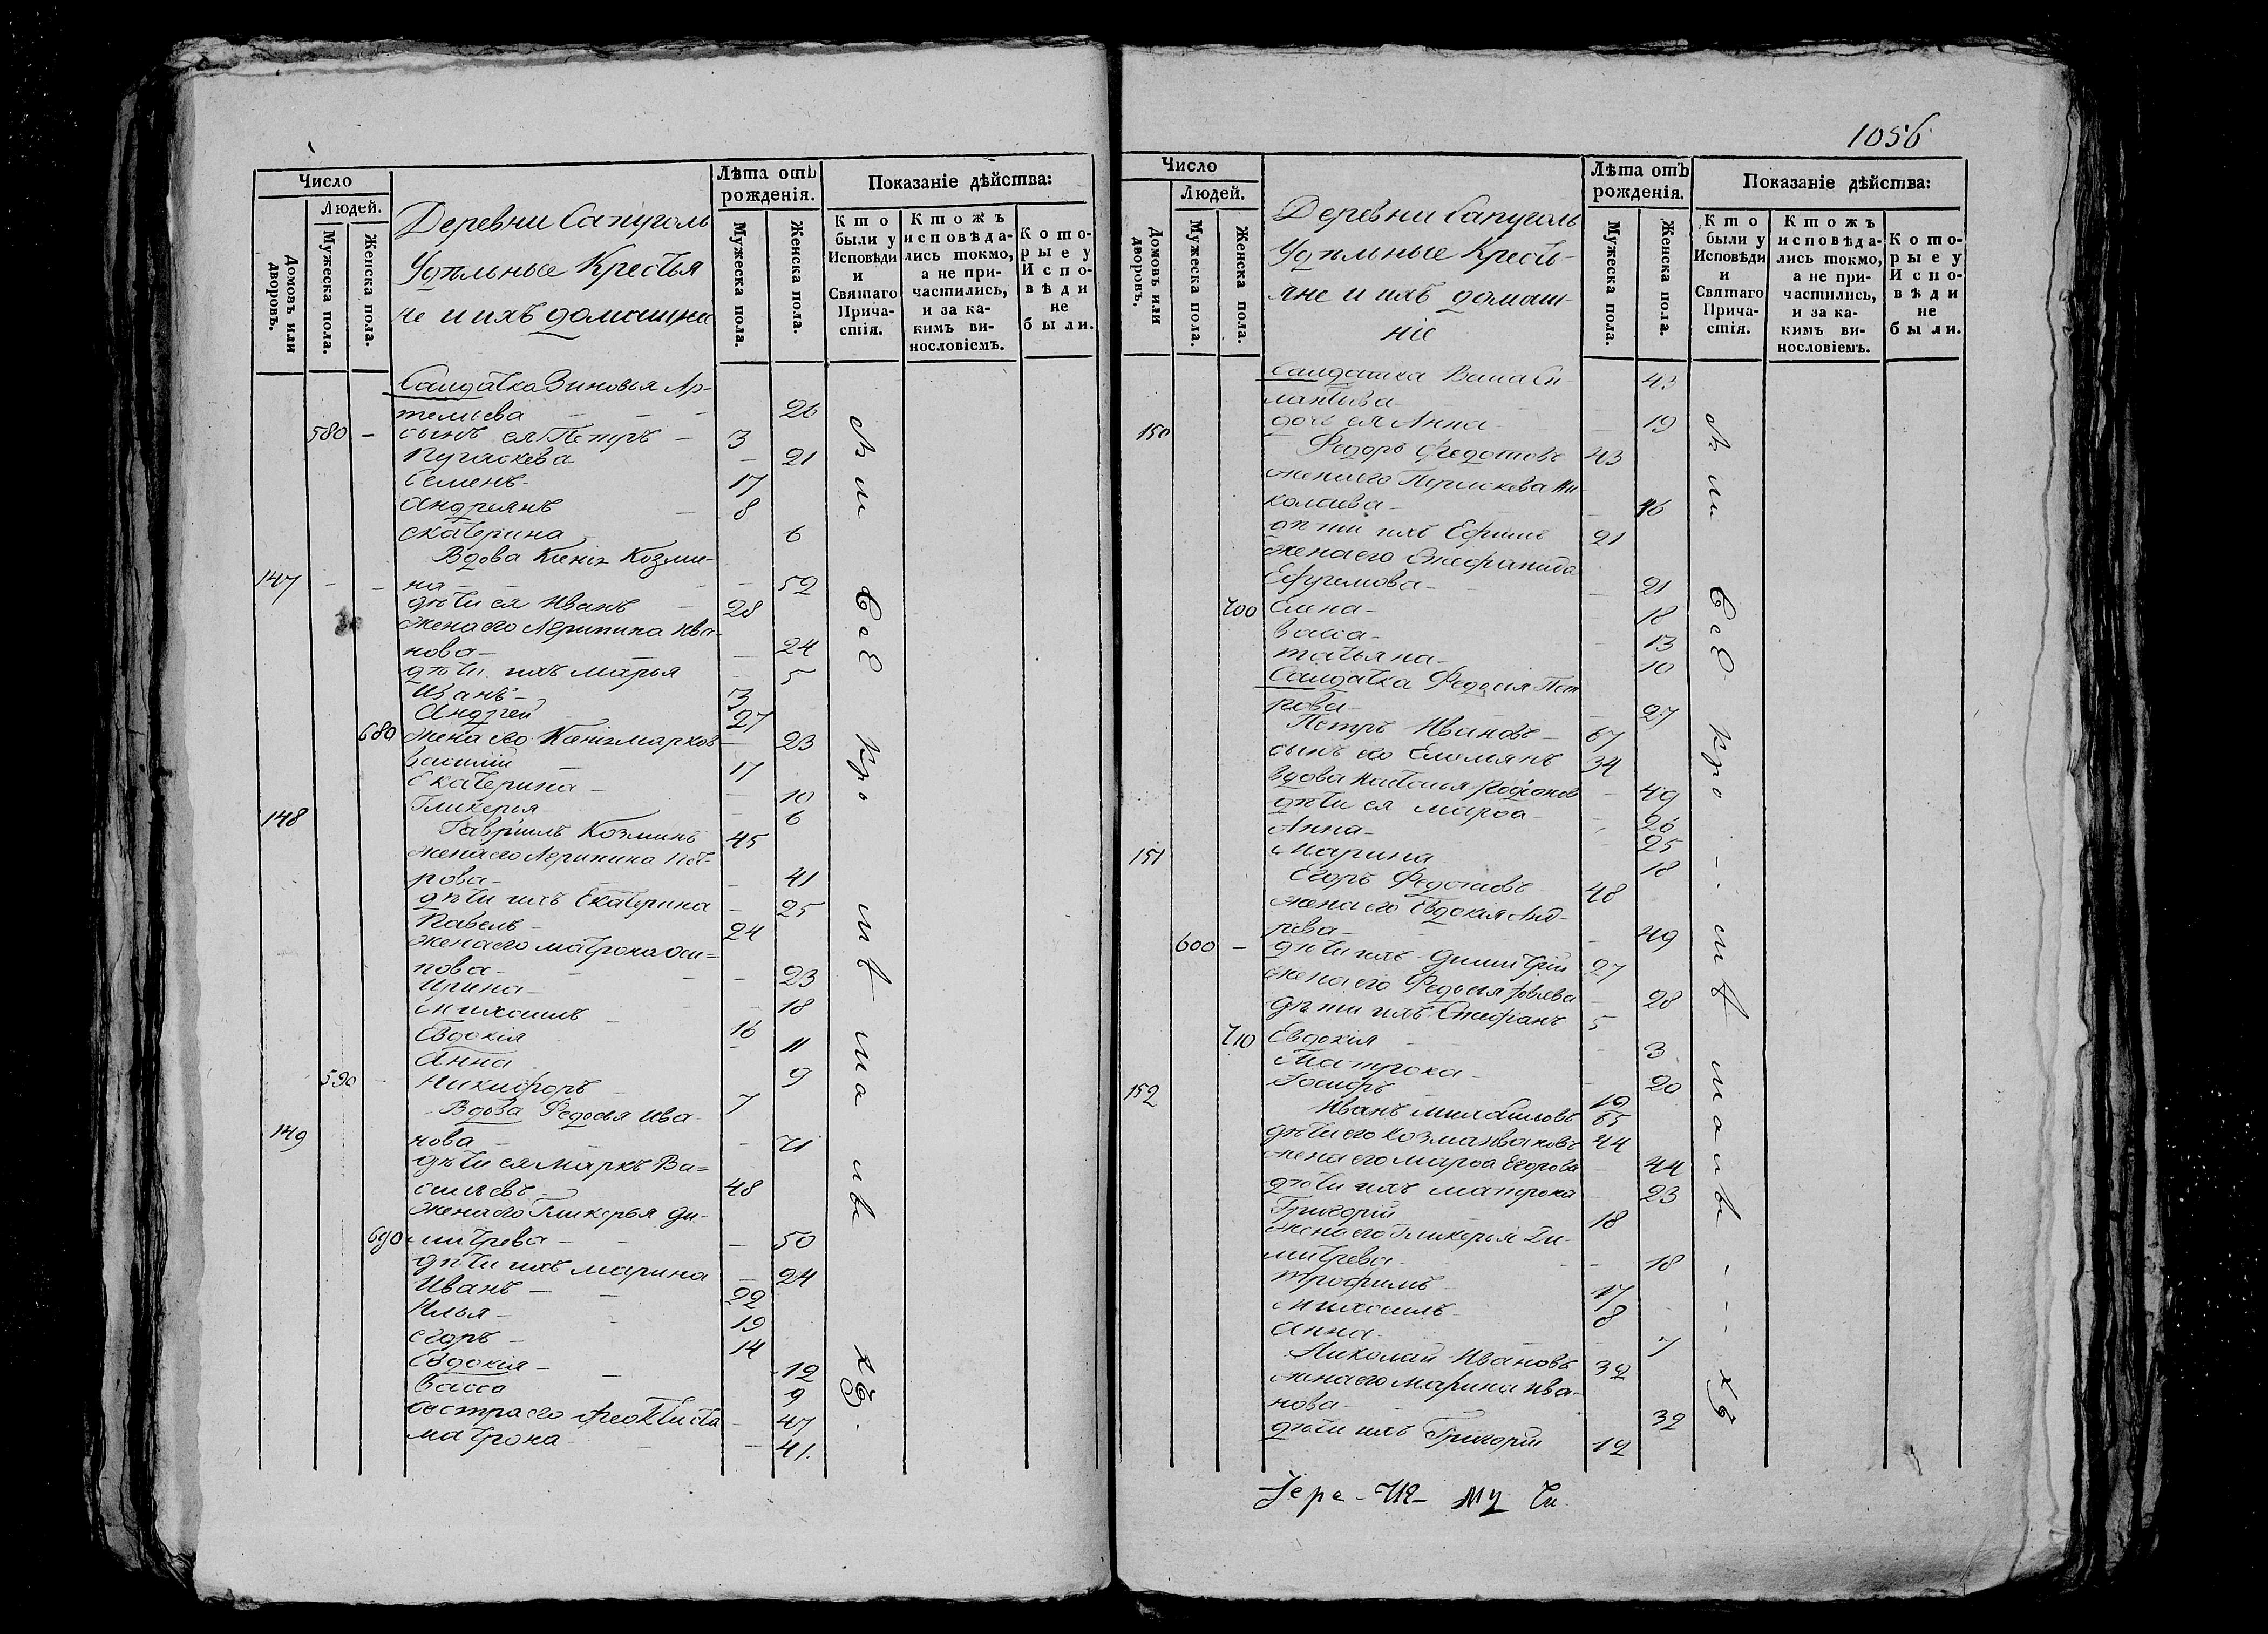 Число
Людей.
Домовъ или дворовъ.
Мужеска пола.
Женска пола.
Деревни Сапуголь
Удѣльные Крестья
не и ихъ домашние
Лѣта отъ
рожденія.
Мужеска пола.
Женска пола.
Показаніе дѣйства:
Кто
были у
Исповѣди
и
Святаго
Прича-
стія.
Ктожъ
исповѣда-
лись токмо,
а не при-
частились,
и за ка-
кимъ ви-
нословіемъ.
Кото-
рые у
Испо-
вѣди
не
были.
Салдатка Зиновья Ар-
темьева 26
580 - сынъ ея Петръ - 3
21
Семенъ 17
Андреянъ 8
екатерина 6
Вдова Ксенія Козми-
147 - - на - 52
дѣти ея Иванъ 28
жена его Агрипина Ива-
нова - 24
дѣти ихъ Марья 5
Иванъ - 3
Андрей 27
680 жена его Ксенія Марков - 23
Василий 17
Екатерина - 10
Гликерья 6
148 Гаврiилъ Козминъ 45
жена его Агрипина Пет-
рова - 41
дѣти ихъ Екатерина - 25
Павелъ - 24
жена его Матрона Оси=
пова - 23
Ирина - 18
Михаилъ 16
Евдокія 11
Анна 9
590 Никифоръ 7
Вдова Федосья Ива
149 нова - 71
дѣти ея Маркъ Ва=
сильевъ 48
жена его Гликерья Ди-
690 митрева - 50
дѣти ихъ Марина - 24
Иванъ - 22
Илья - 19
егоръ - 14
Евдокія - 12
Васса 9
сестра его Феоктиста - 47
Матрона - 41.
1056
Число
Людей.
Домовъ или дворовъ.
Мужеска пола.
Женска пола.
Деревни Сапуголь
Удѣльные Кресть-
яне и ихъ домаш-
ніе
Лѣта отъ
рожденія.
Мужеска пола.
Женска пола.
Показаніе дѣйства:
Кто
были у
Исповѣди
и
Святаго
Прича-
стія.
Ктожъ
исповѣда-
лись токмо,
а не при-
частились,
и за ка-
кимъ ви-
нословіемъ.
Кото-
рые у
Испо-
вѣди
не
были.
Салдатка 43
дочь ея Анна 19
150 Федоръ Федотовъ 43
жена его Параскева Ни
колаева - 46
дѣти ихъ Ефимъ 21
жена его Епифанида
Ефремова - 21
700 Елена - 18
Васса - 13
татьяна - 10
Салдатка Федосія Пет
рова - 27
Петръ Ивановъ - 67
сынъ его Емельянъ 34
вдова Наталья Родіонов - 49
дѣти ея Марѳа - 26
Анна - 25
151 Марина 18
Егоръ Федотовъ 48
жена его Евдокія Анд-
рева - 49
600 - дѣти ихъ Димитрій 27
жена его Федосья - 28
дѣти ихъ Стефанъ 5
710 Евдокия 3
Матрона 20
19
152 Иванъ Михайловъ 65
дѣти его Козма Ивановъ 44
жена его Марѳа Егорова - 44
дѣти ихъ Матрона 23
Григорій 18
жена его Гликерья Ди-
митрева - 18
трофимъ 17
Михаилъ - 8
Анна - 7
Николай Ивановъ 32
жена его Марина Ива-
нова - 32
дѣти ихъ Григорій 12